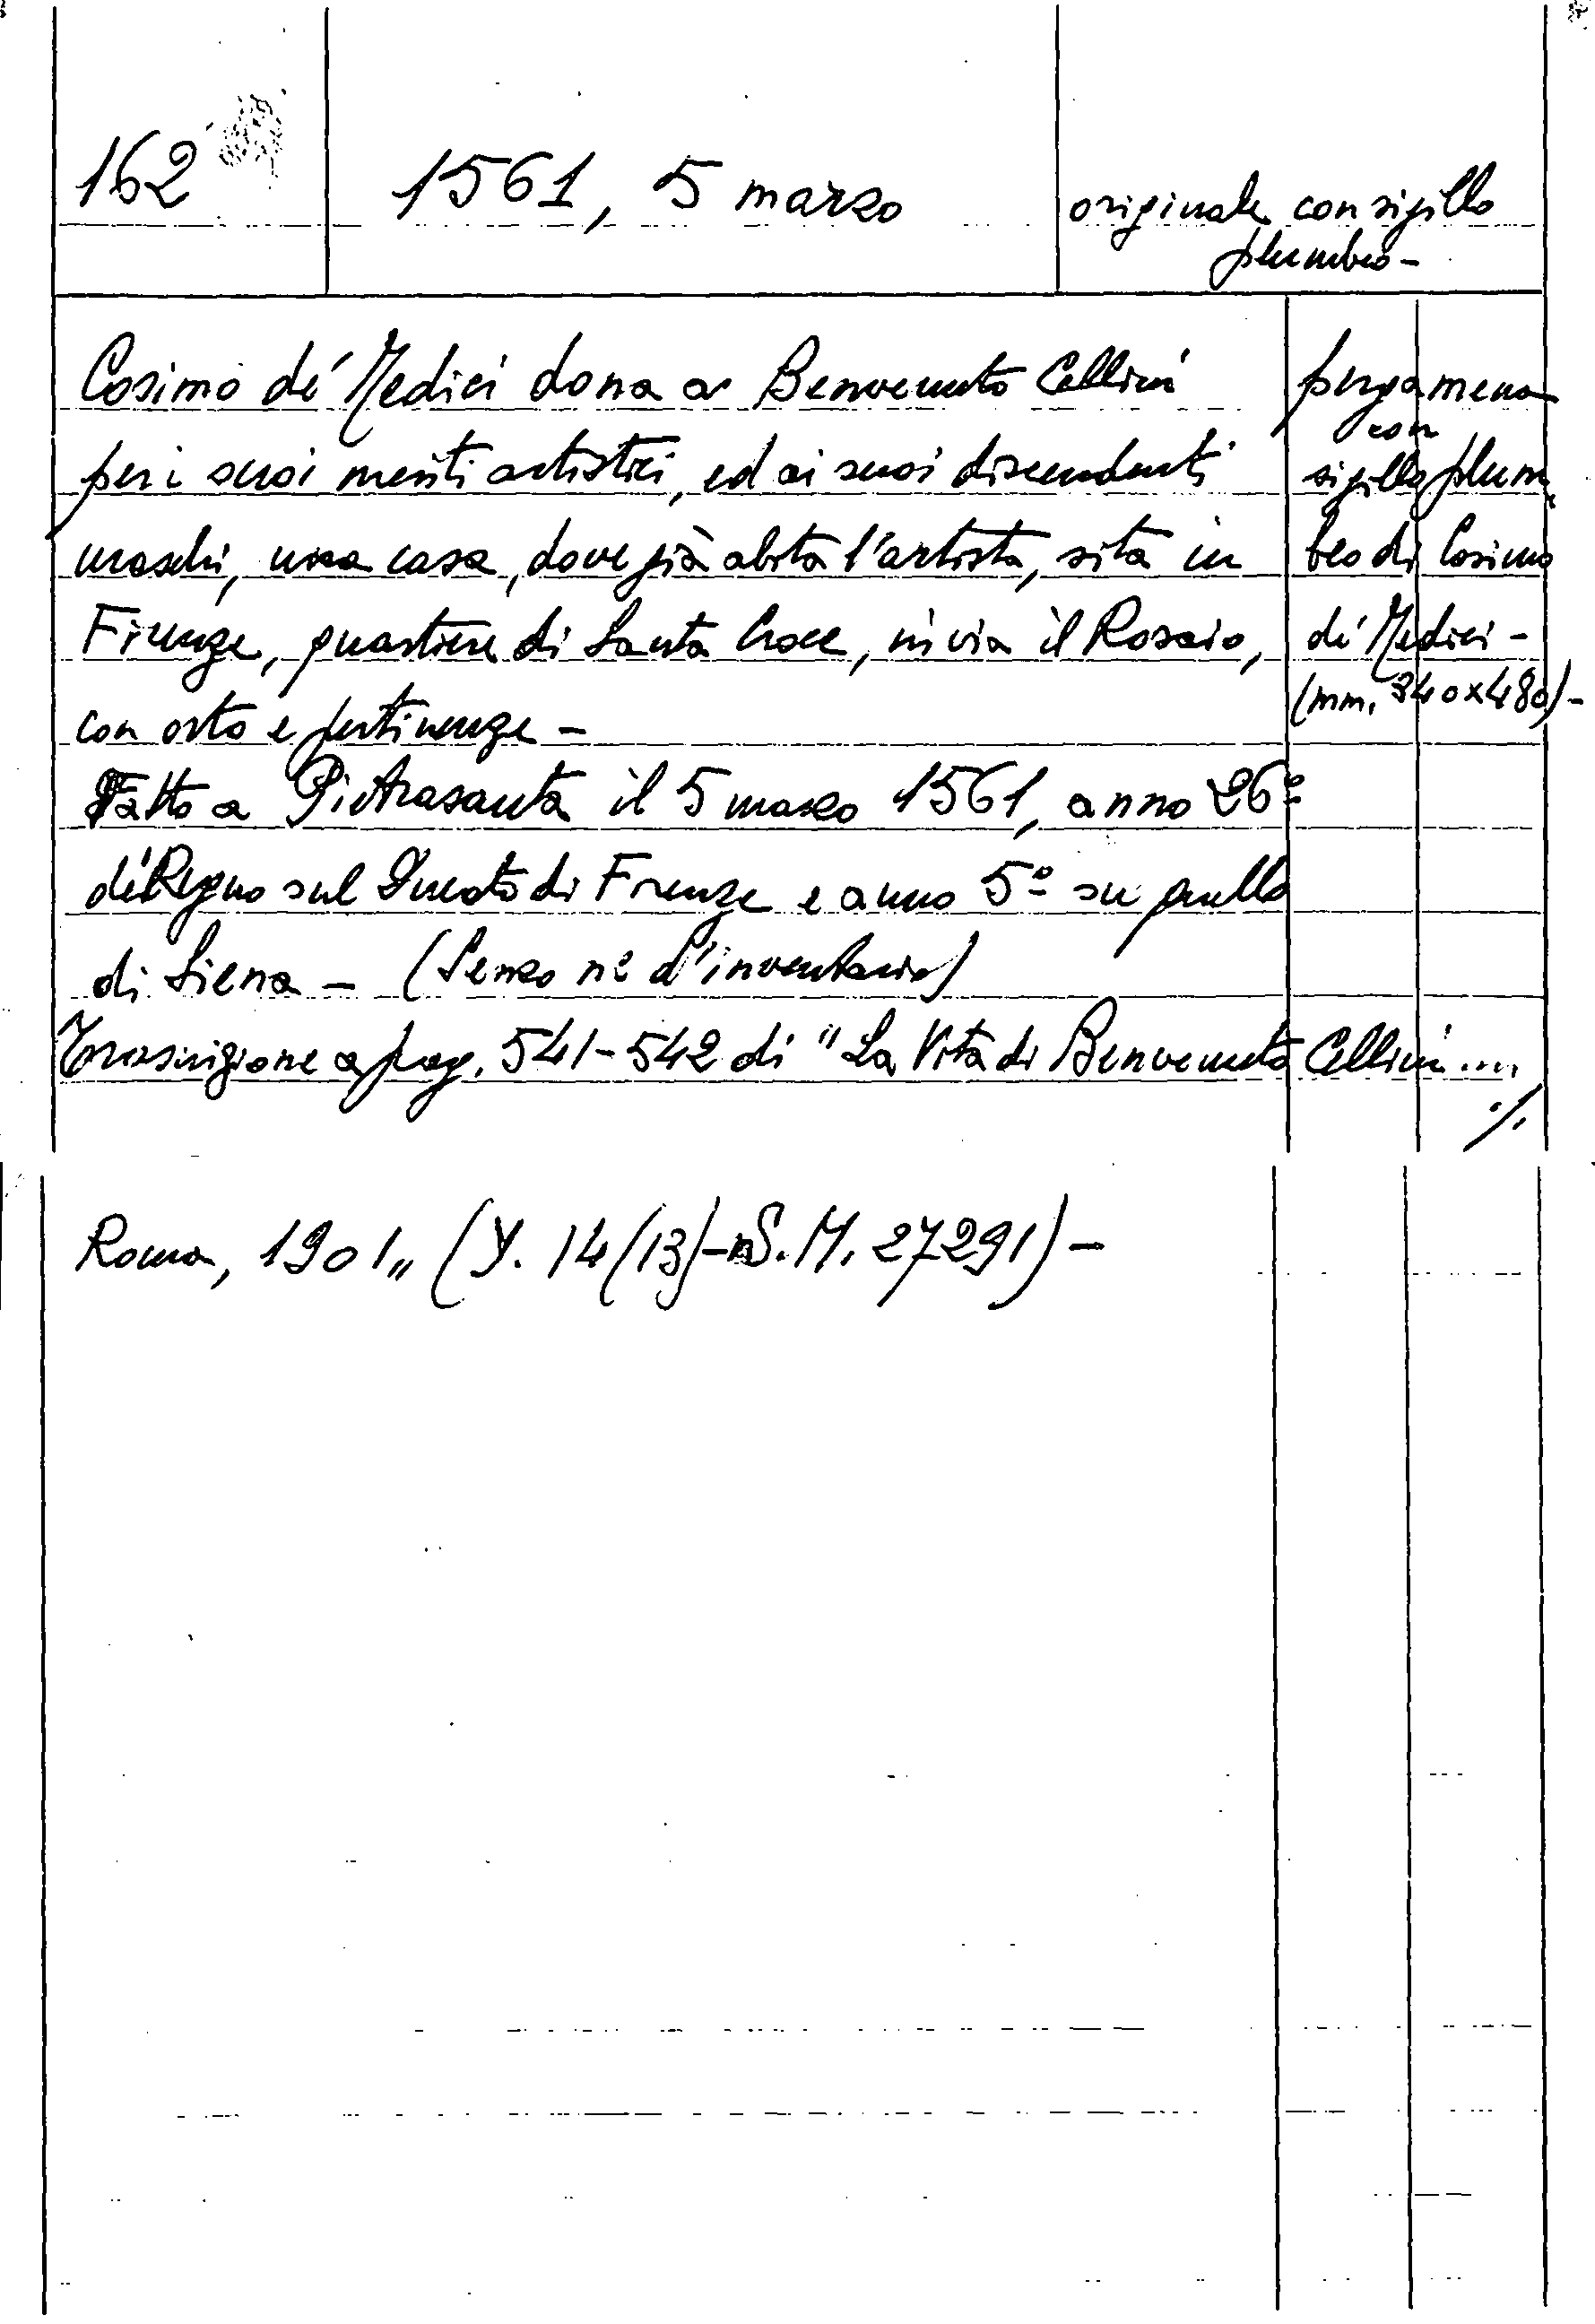 162
1561, 5 marzo
originale con sigillo
plumbeo -
Cosimo de' Medici dona a Benvenuto Cellini
per i suoi meriti artistici, ed ai suoi discendenti
maschi, una casa, dove già abita l'artista, sita in
Firenze, quartiere di Santa Croce, in via il Rosaio,
con orto e pertinenze -
Fatto a Pietrasanta il 5 marzo 1561, anno 26º
de' Regno sul Ducato di Firenze e anno 5º su quello
di Siena - (Senza nº d'inventario)
Trascrizione a pag. 541-542 di "La Vita di Benvenuto Cellini....
./.
pergamena
con
sigillo plum
beo di Cosimo
de' Medici -
(mm. 340x480) -
Roma, 1901,, (Y. 14(13)- S.M. 27291) -